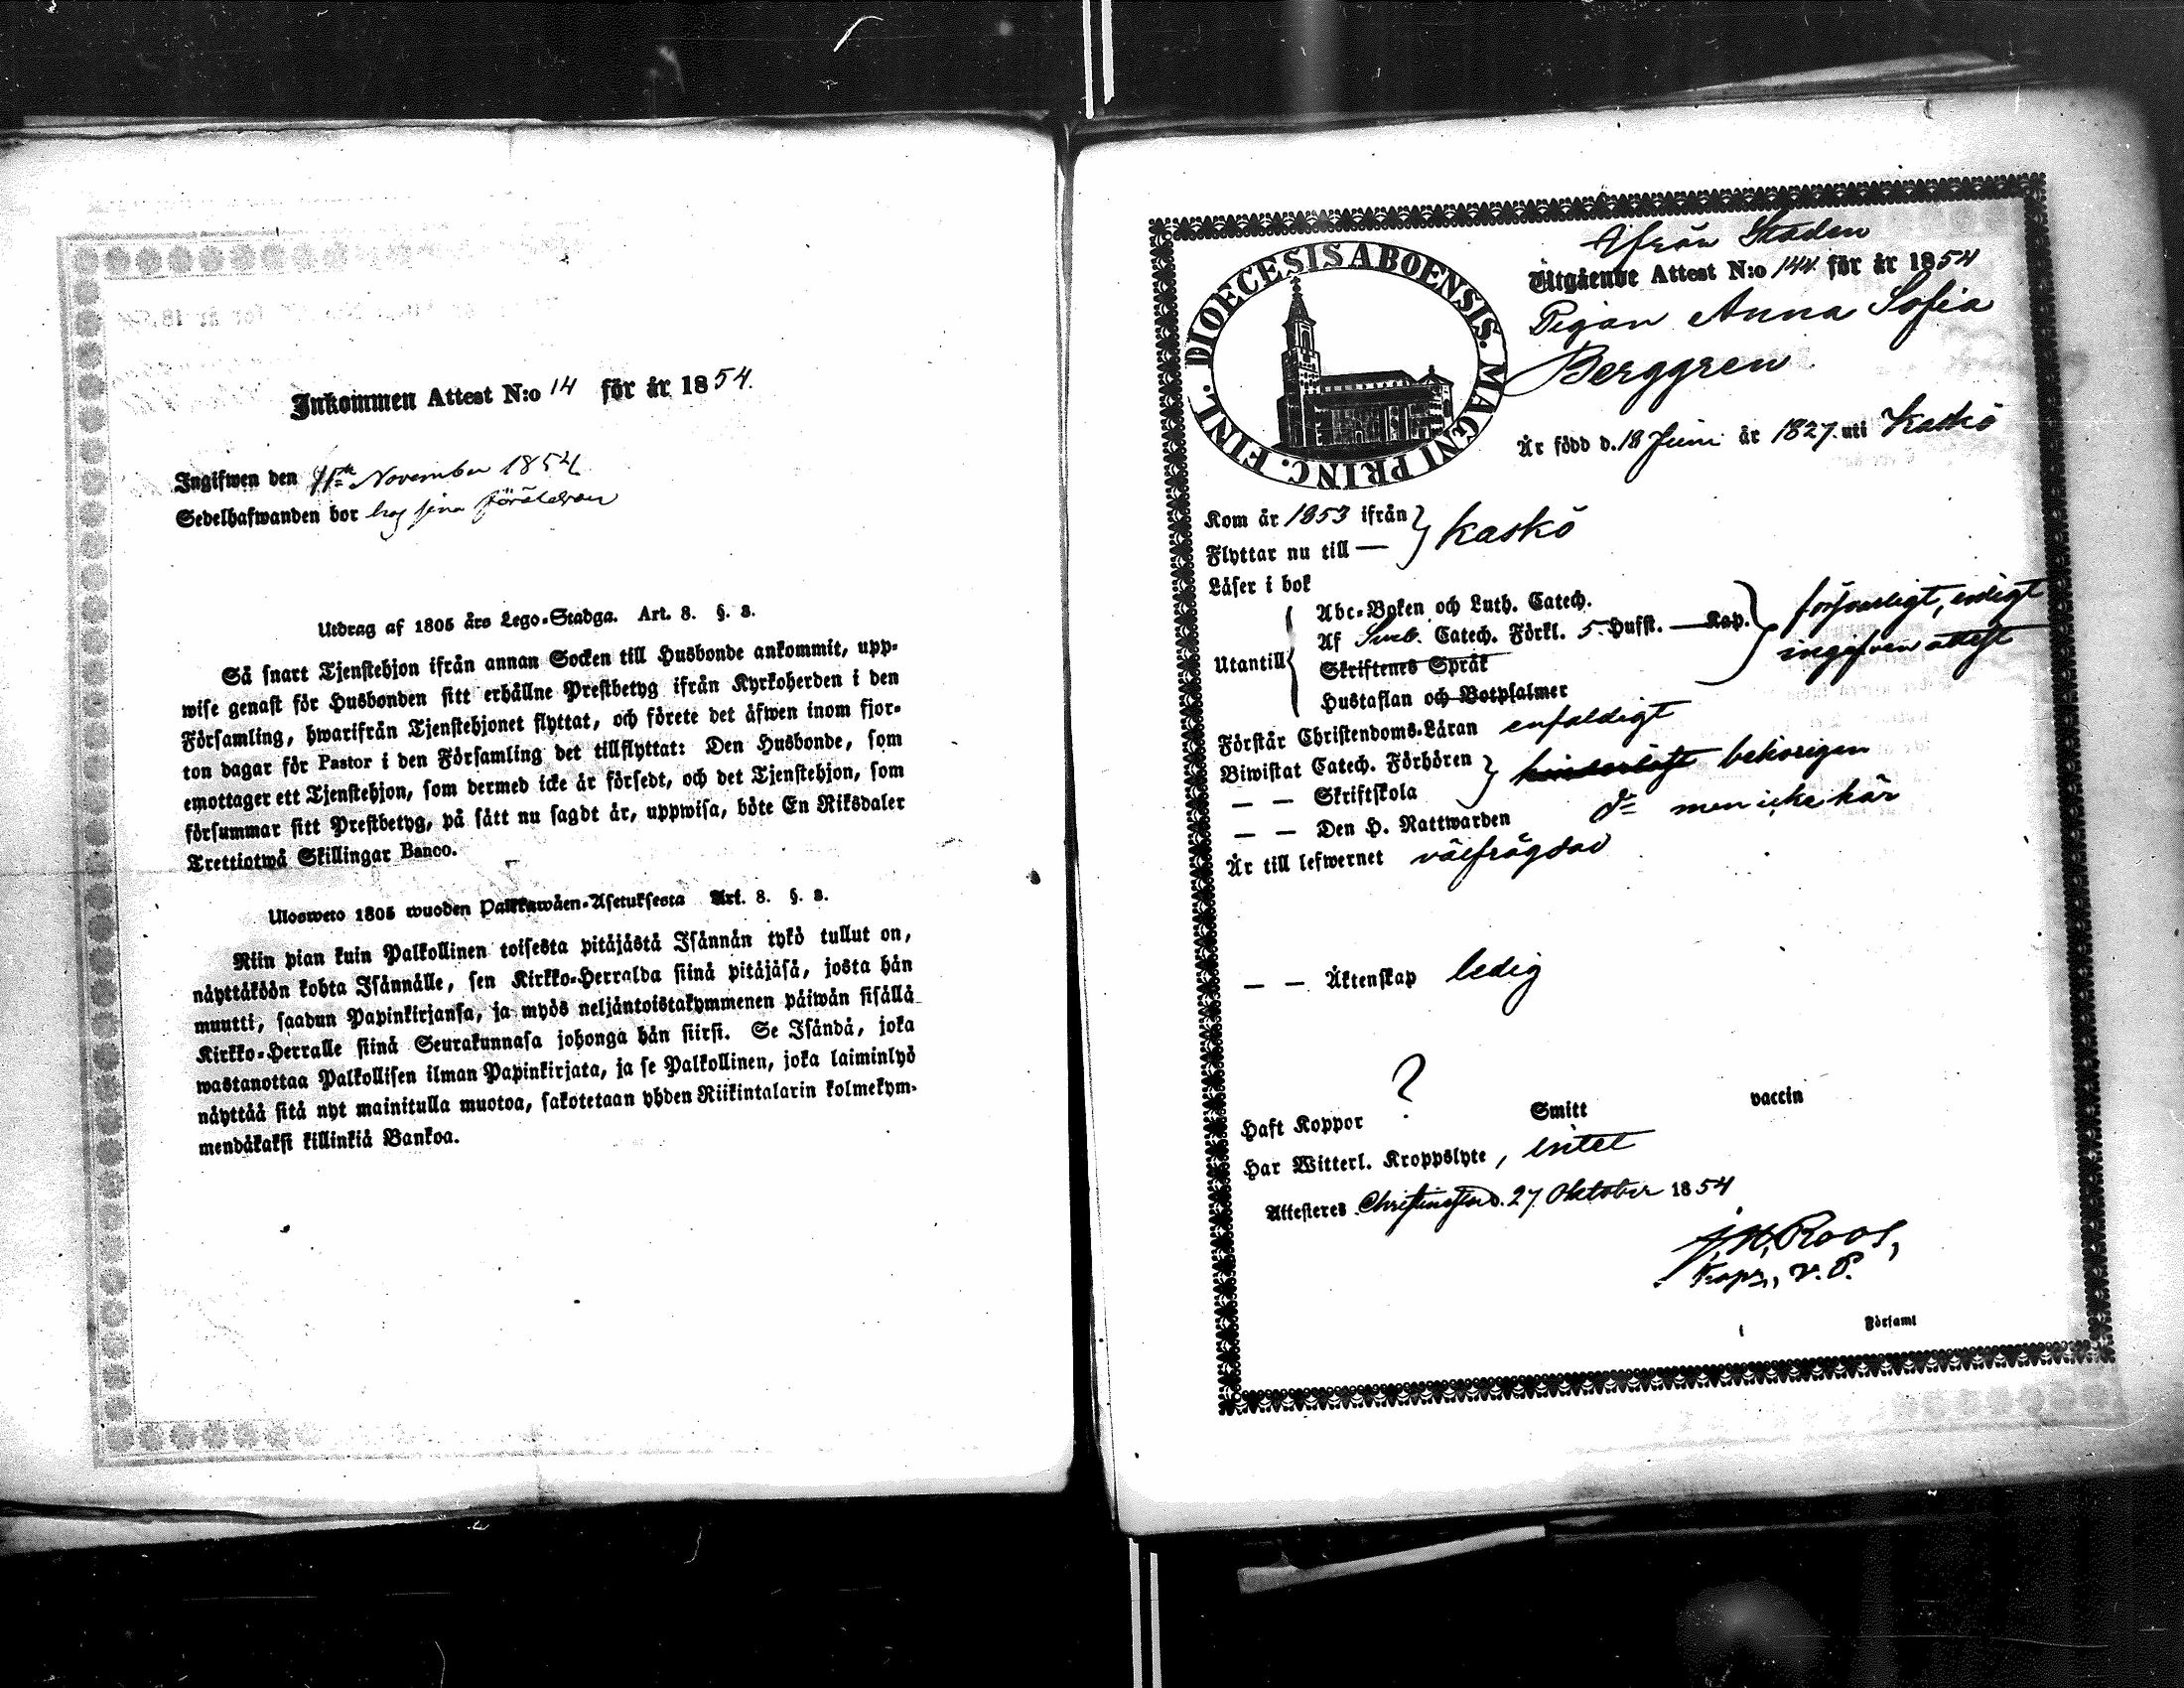 Inkommen Attest N:o 14 för år 1854.
Ingifwen den November 1854
Sedelhafwanden bor hos sina föräldrar
Utdrag af 1805 års Lego-Stadga. Art. 8. §. 3.
Så snart Tjenstehjon ifrån annan Socken till Husbonde ankommit, upp-
wise genast för Husbonden sitt erhållne Prestbetyg ifrån Kyrkoherden i den
Församling, hwarifrån Tjenstehjonet flyttat, och förete det äfwen inom fjor-
ton dagar för Pastor i den Församling det tillflyttat: Den Husbonde, som
emottager ett Tjenstehjon, som dermed icke är försedt, och det Tjenstehjon, som
försummar sitt Prestbetyg, på sätt nu sagdt är, uppwisa, böte En Riksdaler
Trettiotwå Skillingar Banco.
Ulosweto 1805 wuoden Palkkawäen-Asetuksesta Art. 8. §. 3.
Niin pian kuin Palkollinen toisesta pitäjästä Isännän tykö tullut on,
näyttäköön kohta Isännälle, sen Kirkko-Herralda siinä pitäjäsä, josta hän
muutti, saadun Papinkirjansa, ja myös neljäntoistakymmenen päiwän sisällä
Kirkko-Herralle siinä Seurakunnasa johonga hän siirsi. Se Isändä, joka
wastanottaa Palkollisen ilman Papinkirjata, ja se Palkollinen, joka laiminlyö
näyttää sitä nyt mainitulla muotoa, sakotetaan yhden Riikintalarin kolmekym-
mendäkaksi killinkiä Bankoa.
DIOECESIS ABOENSIS. MAGNI PRINC. FINL.
Ifrån Staden
Utgående Attest N:o 144 för år 1854
Pigan Anna Sofia
Berggren
Är född d. 18 Juni år 1827. uti Kaskö
Kom år 1853 ifrån } Kaskö
Flyttar nu till —
Läser i bok
Utantill { Abc-Boken och Luth. Catech.
Af Sveb. Catech. Förkl. 5. Hufst. — Kap. } försvarligt, enligt
Skriftenes Språk ingifven attest
Hustaflan och Botpsalmer
Förstår Christendoms-Läran enfaldigt
Biwistat Catech. Förhören } behörigen
— — Skriftskola
— — Den H. Nattwarden do men icke här
Är till lefwernet välfrägdad
— — Äktenskap ledig
Haft Koppor ? Smitt vaccin
Har Witterl. Kroppslyte, intet
Attesteres Christinestad. 27 Oktober 1854
Roos,
v. P.
i Församl